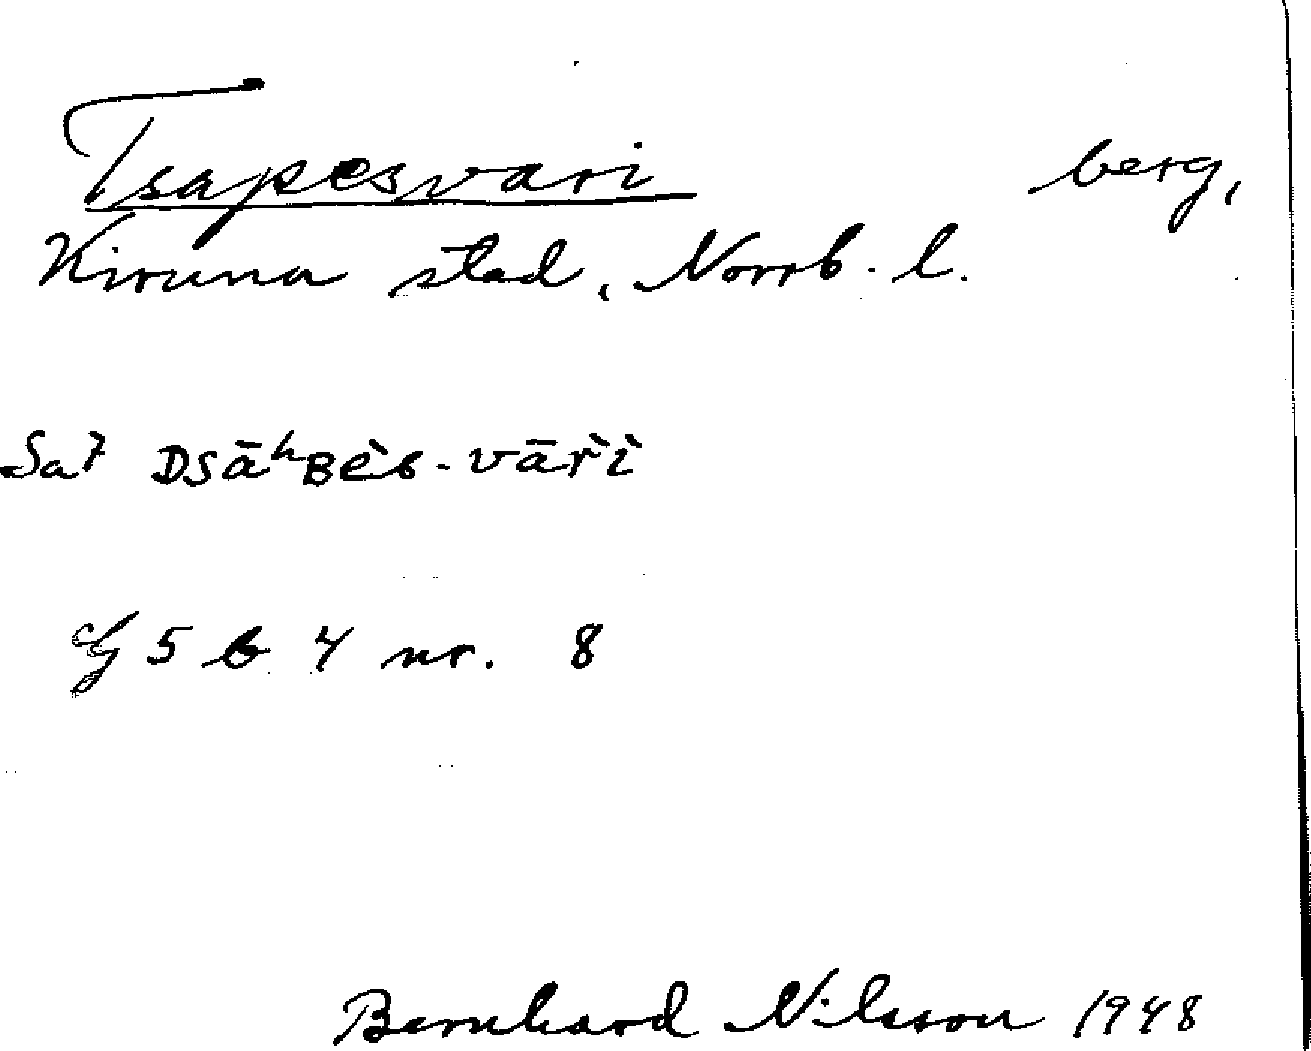 Tsapesvari berg,
Kiruna stad, Norrb. l.
DSāʰBēs-vāri
5 b 4 nr. 8
Bernhard Nilsson 1948